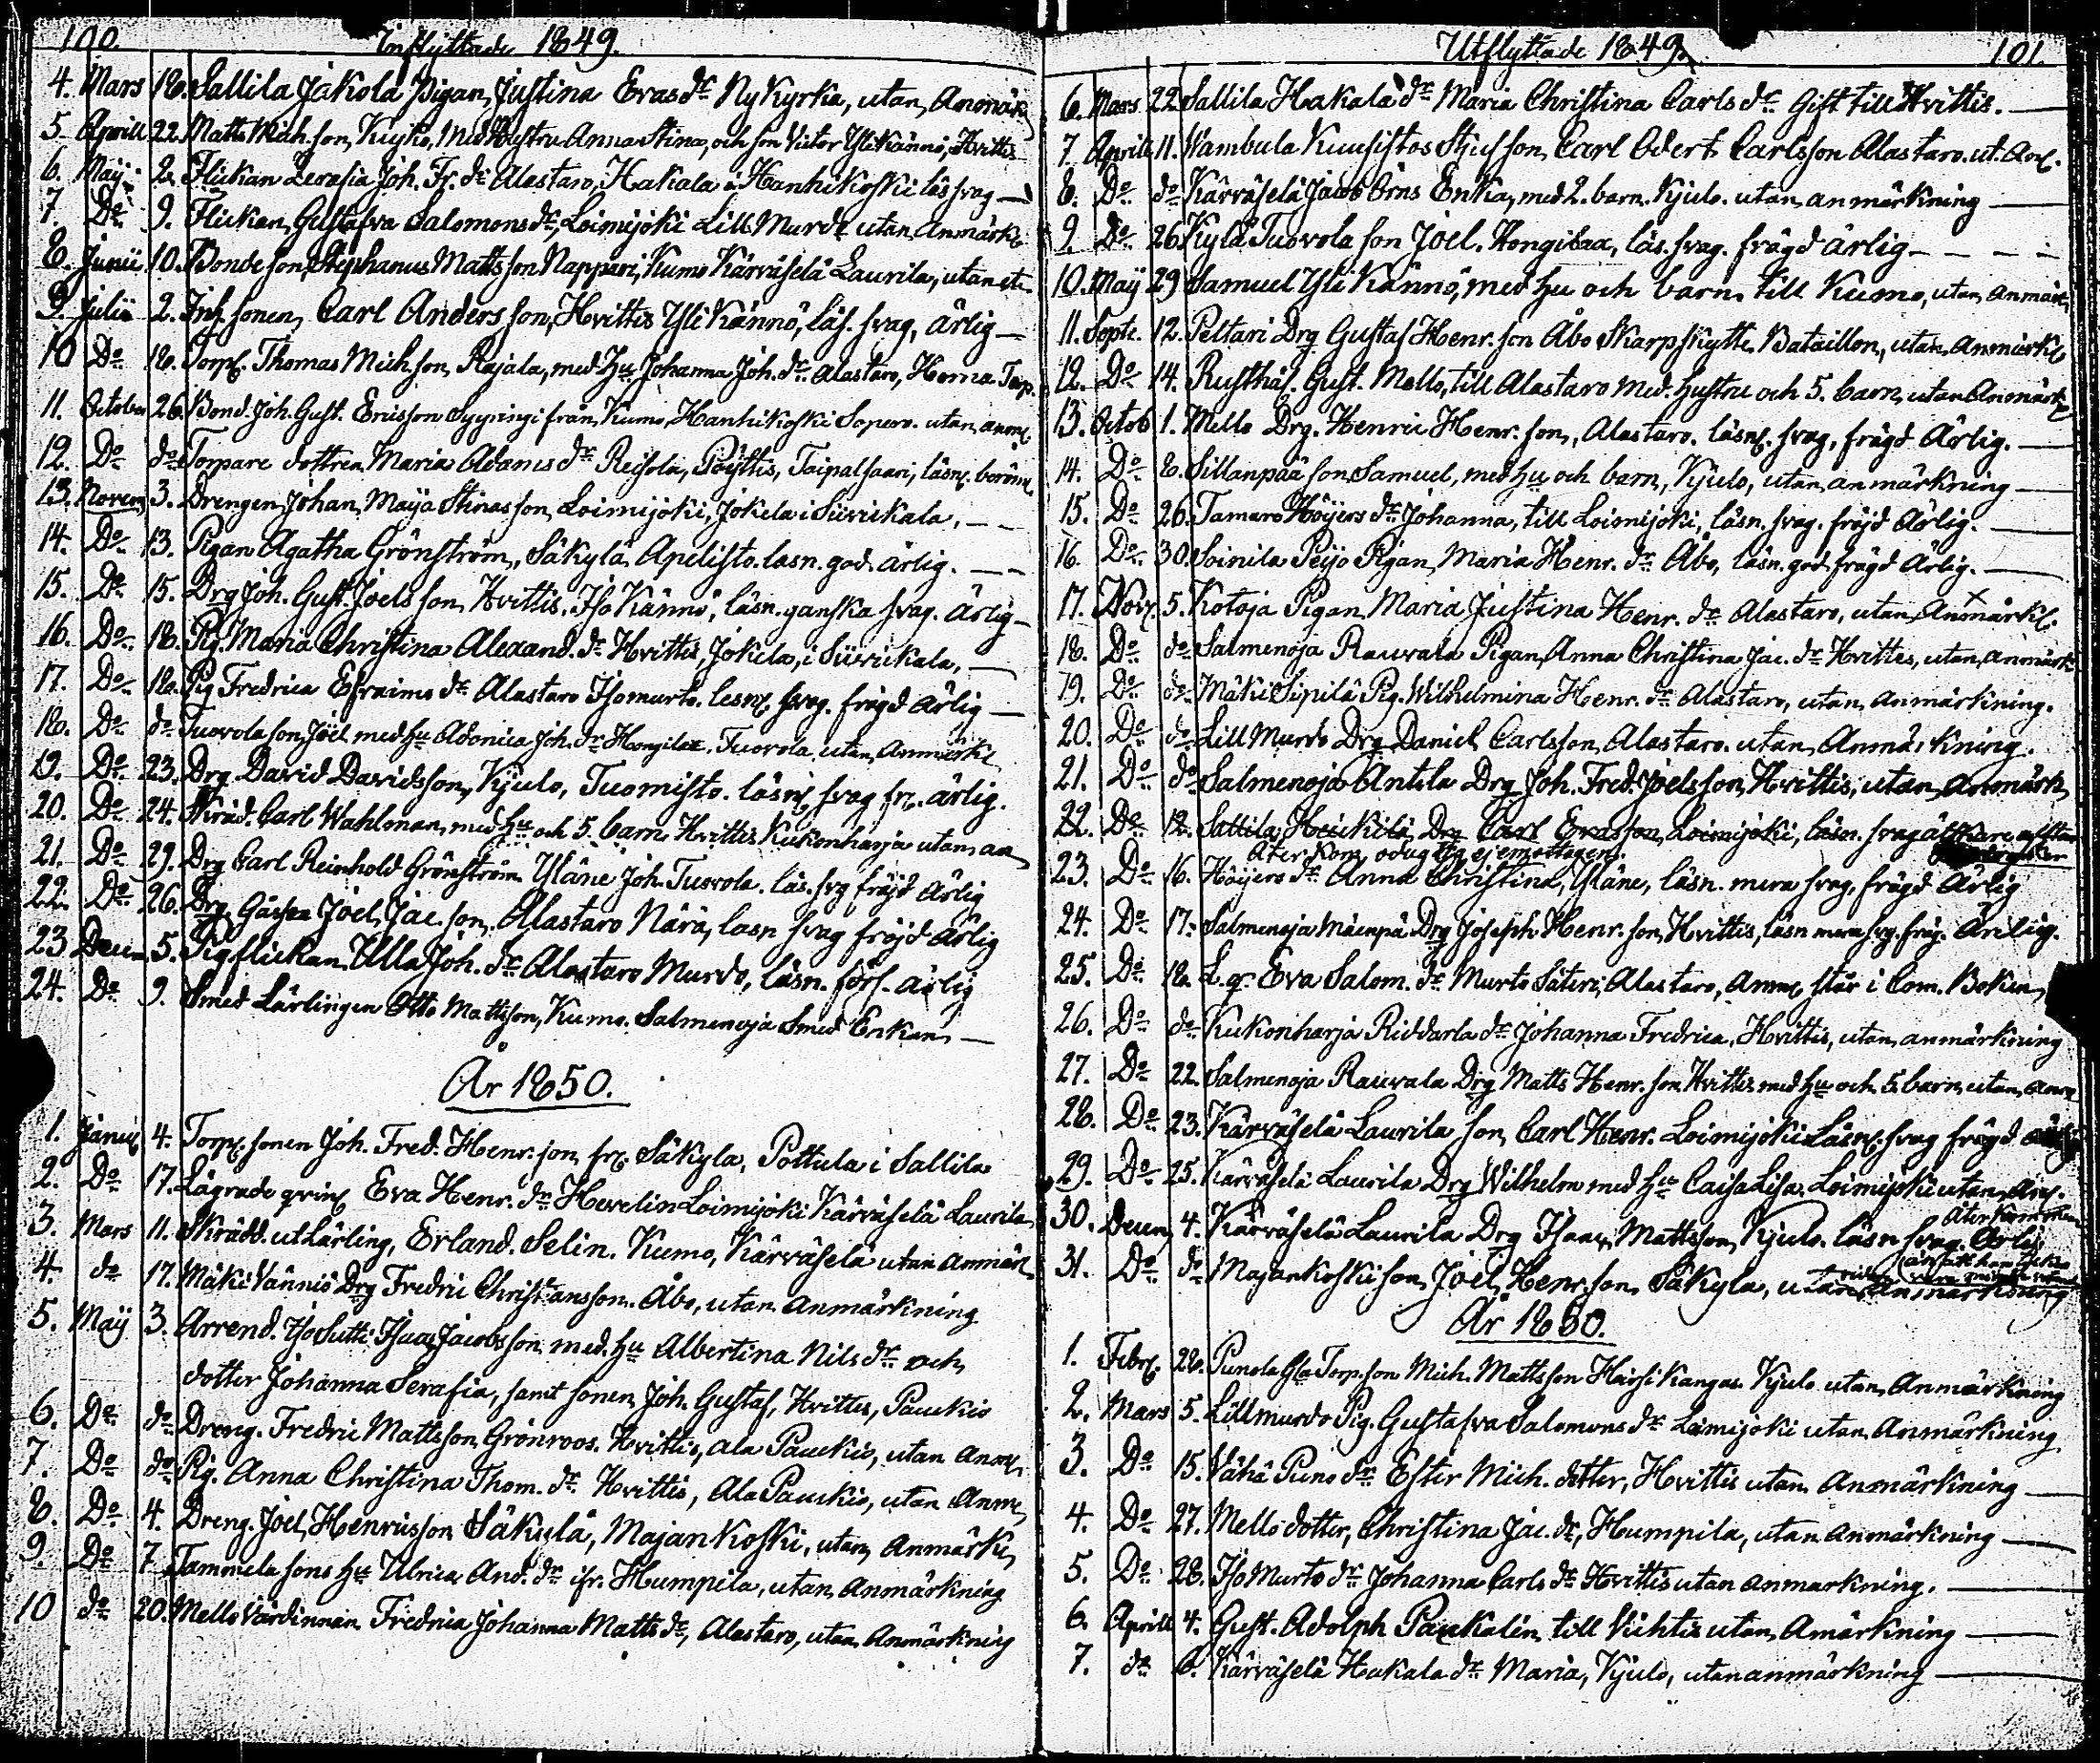 100. Inflyttade 1849.
4. Mars 18. Sallila Jakola Pigan, Justina Evas dr Nykyrka, utan, Anmärk
5 Aprill 22. Matts Mich. son, Kujko, Med Hustru Anna Stina, och son Victor Yli Kännö, Hvittis
6. Maij 2. Flickan Serafia Joh. Fr. dr Alastaro, Hakala i Hanhikoski läs svag —
7. Do 9. Flickan, Gustafva Salomons dr, Loimijoki Lill Murdo utan Anmärk
8. Junii 10. Bonde son, Stephanus Mattsson Nappari, Kumo Kärväselä Laurila, utan
9. Julii 2. Inh sonen, Carl Andersson, Hvittis Yli Kännö, läs. svag, ärlig —
10 Do 18. Torp. Thomas Michson, Rajala, med hu Johanna Joh. dr Alastaro, Horna Torp.
11. October 26. Bond. Joh. Gust. Ericsson Syyringi från Kumo, Hanhikoski Sopero. utan anm
12. Do do Torpare dottren Maria Adams dr Reisola, Pöyttis, Taipalsaari, läsn. berömr
13. Novem 3. Drengen Johan Maija Stinas son, Loimijoki, Jokela i Suvickala, — —
14. Do 13. Pigan Agatha Grönström, Säkylä Apelisto. läsn. god. ärlig. — —
15. Do 15. Drg Joh. Gust. Joels son, Hvittis. Iso Kännö, läsn. ganska svag. ärlig —
16. Do 18. Pig. Maria Christina Alexand. dr Hvittis, Jokela, i Suvickala, —
17. Do 18. Pig Fredrica Efraims dr Alastaro Isomurto. lesn. svag. frägd ärlig —
18. Do do Tuorola son Joel med hu Adonica Joh. dr Hongilax. Tuorola utan Anmärk
19. Do 23. Drg. David Davidsson, Kjulo, Tuomisto. läsn. svag fr. ärlig.
20. Do 24. Skräd. Carl Wahlman, med hu och 5. barn Hvittis Kukonharja utan an
21. Do 29. Drg Carl Reinhold Grönström Yläne Joh. Tuorola. läs. svg fräjd ärlig
22. Do 26. Drg. Gåssen Joel, Jac. son, Alastaro Närä, läsn svag fröjd ärlig
23 Decem 5. Pig flickan Ulla Joh. dr Alastaro Murdo, läsn. förs. ärlig
24. Do 9. Smed Lärlingen Otto Mattsson, Kumo. Salmenoja Smed Enkan —
År 1850.
1. Janu 4. Torp. sonen Joh. Fred. Henr. son fr. Säkyla, Pottula i Sallila
2. Do 17. Lägrade qvin. Eva Henr. dr Hevelin Loimijoki Kärväselä Laurila
3. Mars 11. Skrädd. ut Lärling, Erland. Selin. Kumo, Kärväselä utan anmärk
4. do 17. Mäki Vänniö Drg Fredric Christiansson. Åbo, utan anmärkning
5. Maij 3. Arrend. Iso Sutti Isaac Jacobsson. med. hu Albertina Nils dr och
dotter Johanna Serafia, samt sonen Joh. Gustaf, Hvittis, Paukio
6. Do do Dreng. Fredric Mattsson Grönroos. Hvittis, ala Paukio, utan Anm
7. Do do Pig. Anna Christina Thom. dr Hvittis, Ala Paukio, utan Anm
8. Do 4. Dreng. Joel Henricsson Säkulä, Majankoski, utan anmärk,
9. Do 7. Tammela sons hu Ulrica And. dr ifr. Humpila, utan anmärkning
10 do 20. Mello Värdinnan Fredrica Johanna Matts dr, Alastaro, utan Anmärkning
Utflyttade 1849. 101.
6. Mars 22 Sallila Hakala dr Maria Christina Carls dr Gift till Hvittis. —
7 Aprill 11. Wambula Kuusistos Styfson, Carl Odert Carlsson Alastaro. ut. An.
8. Do do Kärväselä Jacob Örns Enka, med 2. barn. Kjulo. utan anmärkning —
9. Do 26 Kylä Tuorola son Joel. Hongilax, läs. svag. frägd ärlig — — — —
10. Maij 29 Samuel Yli Kännö, med hu och barn till Kumo, utan anmärk,
11. Septe. 12. Peltari Drg Gustaf Henr. son Åbo Skarpskytte Bataillon, utan, anmärk
12. Do 14. Rusthål. Gust. Mello, till Alastaro med. Hustru och 5. barn, utan Anmärk
13. Octob 1. Mello Drg. Henric Henr. son, Alastaro. läsn. svag, frägd Ärlig. —
14. Do 8. Sillanpää son Samuel, med hu och barn, Kjulo, utan anmärkning —
15. Do 26. Tamaro Höijers dr Johanna, till Loimijoki, läsn. svag. fröjd Ärlig. —
16. Do 30. Soinila Peijo Pigan, Maria Henr. dr Åbo, läsn. god frägd Ärlig. —
17. Nov. 5. Kotoja Pigan Maria Justina Henr. dr Alastaro, utan, Anmärk.
18. Do do Salmenoja Rauvala Pigan, Anna Christina Jac. dr Hvittis, utan, anmärk
19. Do do Mäki Sipilä Pig. Wilhelmina Henr. dr Alastaro, utan anmärkning.
20. Do do Lill Murdo Drg Daniel Carlsson, Alastaro. utan Anmärkning.
21. Do do Salmenoja Antila Drg Joh. Fred. Joelsson, Hvittis, utan, Anmärk
22. Do 12. Sattila, Heickilä, Drg Carl Evasson, Loimijoki, läsn. svag
Åter kom, oduglig ej emottagen.
23. Do 16. Höijers dr Anna Christina, Yläne, läsn. mera svag, frägd Ärlig
24. Do 17. Salmenoja Mäenpä Drg Joseph Henr. son, Hvittis, läsn mera svg. fräg. Ärlig.
25. Do 18. L. q. Eva Salom. dr Murto Säteri, Alastaro, Anm står i Com. Boken,
26. Do do Kukonharja Riddarla dr Johanna Fredrica, Hvittis, utan anmärkning
27. Do 22. Salmenoja Rauvala Drg Matts Henr. son Hvittis med hu och 5. barn, utan, anm
28. Do 23. Kärväselä Laurila son, Carl Henr. Loimijoki Läsn. svag frägd
29. Do 25. Kärväselä Laurila Drg Wilhelm med hu Caisa Lisa. Loimijoki utan, An.
Återkommen
30. Decem 4. Kärväselä Laurila Drg Isaac, Mattsson, Kjulo. läsn svag. Ärlig
31. Do do Majankoski son, Joel, Henr. son, Säkyla, utan, anmärkning
År 1850.
1. Febr. 28. Punola Torp. son Mich. Mattsson Härsikangas. Kjulo utan, Anmärkning
2. Mars 5. Lillmurdo Pig. Gustafva Salomons dr Loimijoki utan Anmärkning
3. Do 15. Vähä Puno dr Ester Mich. dotter, Hvittis utan Anmärkning —
4. Do 27. Mello dotter, Christina Jac. dr, Humpila, utan anmärkning —
5. Do 28. Iso Murto dr Johanna Carls dr Hvittis utan anmarkning. —
6. Aprill 4. Gust. Adolph Paukalin till Vichtis utan, Amärkning —
7. do 6. Kärväselä Hakala dr Maria, Kjulo, utan anmärkning —